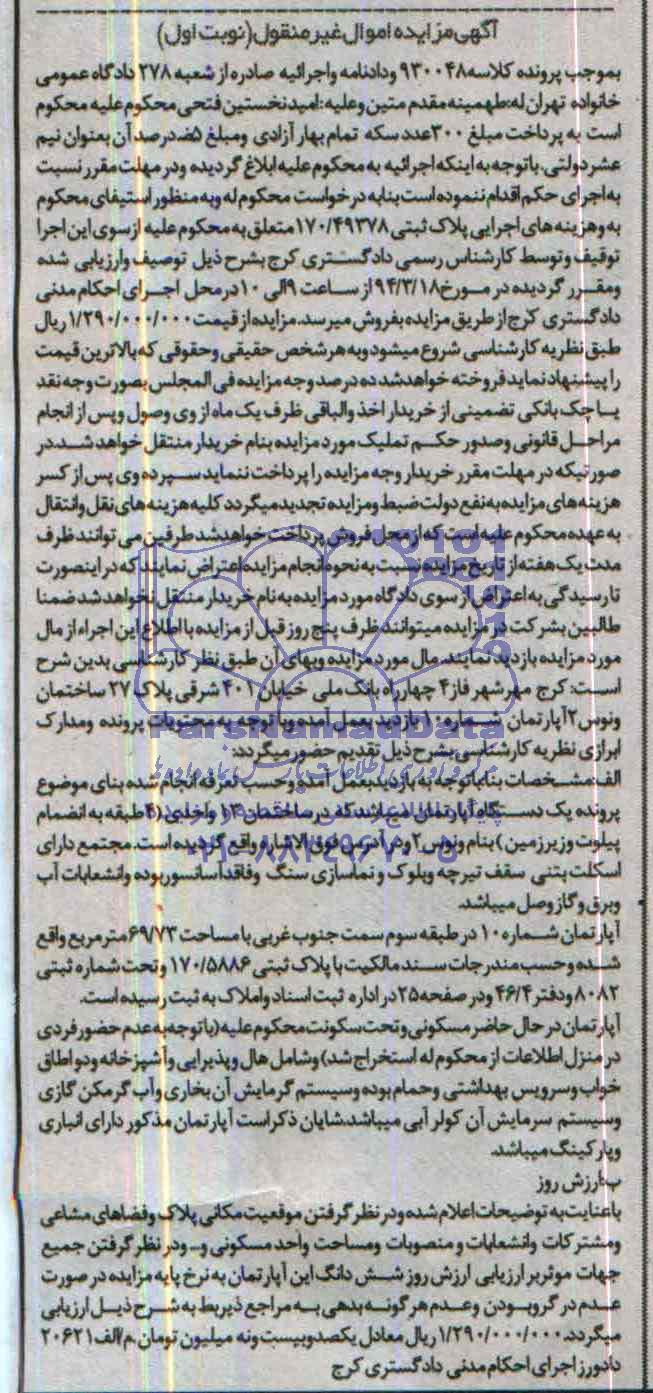 آگهی مزایده اموال غیر منقول (نوبت اول)
بموجب پرونده کلاسه ۹۳۰۰۴۸ ودادنامه واجرائیه صادره از شعبه ۲۷۸ دادگاه عمومی
خانواده تهران له:طهمینه مقدم متین وعلیه:امید نخستین فتحی محکوم علیه محکوم
است به پرداخت مبلغ ۳۰۰عدد سکه تمام بهار آزادی ومبلغ ۵ضددرصد آن بعنوان نیم
عشر دولتی. باتوجه به اینکه اجرائیه به محکوم علیه ابلاغ گردیده ودر مهلت مقرر نسبت
به اجرای حکم اقدام ننموده است بنابه درخواست محکوم له وبه منظور استیفای محکوم
به وهزینه های اجرایی پلاک ثبتی ۱۷۰/۴۹۳۷۸متعلق به محکوم علیه ازسوی این اجرا
توقیف وتوسط کارشناس رسمی دادگستری کرج بشرح ذیل توصیف وارزیابی شده
ومقرر گردیده در مورخ۹۴/۳/۱۸ از ساعت ۹الی ۱۰درمحل اجرای احکام مدنی
دادگستری کرج از طریق مزایده بفروش میرسد. مزایده از قیمت ۱/۲۹۰/۰۰۰/۰۰۰ریال
طبق نظریه کارشناسی شروع میشود وبه هر شخص حقیقی وحقوقی که بالاترین قیمت
را پیشنهاد نماید فروخته خواهد شد ده درصد وجه مزایده فی المجلس بصورت وجه نقد
یا چک بانکی تضمینی از خریدار اخذ والباقی ظرف یک ماه از وی وصول وپس از انجام
مراحل قانونی وصدور حکم تملیک مورد مزایده بنام خریدار منتقل خواهد شد.در
صورتیکه در مهلت مقرر خریدار وجه مزایده را پرداخت ننماید سپرده وی پس از کسر
هزینه های مزایده به نفع دولت ضبط ومزایده تجدید میگردد کلیه هزینه های نقل وانتقال
به عهده محکوم علیه است که از محل فروش پرداخت خواهد شد طرفین می توانند ظرف
مدت یک هفته از تاریخ مزایده نسبت به نحوه انجام مزایده اعتراض نمایند که در اینصورت
تا رسیدگی به اعتراض از سوی دادگاه مورد مزایده به نام خریدار منتقل نخواهد شد ضمنا
طالبین بشرکت در مزایده میتوانند ظرف پنج روز قبل از مزایده با اطلاع این اجراء از مال
مورد مزایده بازدید نمایند. مال مورد مزایده وبهای آن طبق نظر کارشناسی بدین شرح
است: کرج مهرشهر فاز۴ چهارراه بانک ملی خیابان ۴۰۱ شرقی پلاک ۲۷ ساختمان
ونوس۲آپارتمان شماره۱۰ بازدید بعمل آمده وبا توجه به محتویات پرونده ومدارک
ابرازی نظریه کارشناسی بشرح ذیل تقدیم حضور میگردد:
الف:مشخصات بنا:باتوجه به بازدید بعمل آمده وحسب تعرفه انجام شده بنای موضوع
پرونده یک دستگاه آپارتمان میباشد که در ساختمان ۱۳ واحدی (۴طبقه به انضمام
پیلوت وزیرزمین ) بنام ونوس۲ودر آدرس فوق الاشاره واقع گردیده است. مجتمع دارای
اسکلت بتنی سقف تیرچه وبلوک و نماسازی سنگ وفاقد آسانسور بوده وانشعابات آب
وبرق وگاز وصل میباشد.
آپارتمان شماره ۱۰ در طبقه سوم سمت جنوب غربی با مساحت ۶۹/۷۳مترمربع واقع
شده وحسب مندرجات سند مالکیت با پلاک ثبتی ۱۷۰/۵۸۸۶ وتحت شماره ثبتی
۸۰۸۲ ودفتر ۴۶/۴ ودر صفحه۲۵ در اداره ثبت اسناد واملاک به ثبت رسیده است.
آپارتمان در حال حاضر مسکونی وتحت سکونت محکوم علیه(باتوجه به عدم حضور فردی
در منزل اطلاعات از محکوم له استخراج شد) وشامل هال وپذیرایی وآشپزخانه ودو اطاق
خواب وسرویس بهداشتی وحمام بوده وسیستم گرمایش آن بخاری وآب گرمکن گازی
وسیستم سرمایش آن کولر آبی میباشد.شایان ذکر است آپارتمان مذکور دارای انباری
وپارکینگ میباشد.
ب:ارزش روز
باعنایت به توضیحات اعلام شده ودر نظر گرفتن موقعیت مکانی پلاک وفضاهای مشاعی
ومشترکات وانشعابات و منصوبات ومساحت واحد مسکونی و... ودر نظر گرفتن جمیع
جهات موثر بر ارزیابی ارزش روز شش دانگ این آپارتمان به نرخ پایه مزایده در صورت
عدم در گرو بودن وعدم هرگونه بدهی به مراجع ذیربط به شرح ذیل ارزیابی
میگردد. ۱/۲۹۰/۰۰۰/۰۰۰ ریال معادل یکصدوبیست ونه میلیون تومان .م/الف ۲۰۶۲۱
دادورز اجرای احکام مدنی دادگستری کرج
ParsNamadData
مرکز فرآوری اطلاعات پارس نماد داده ها